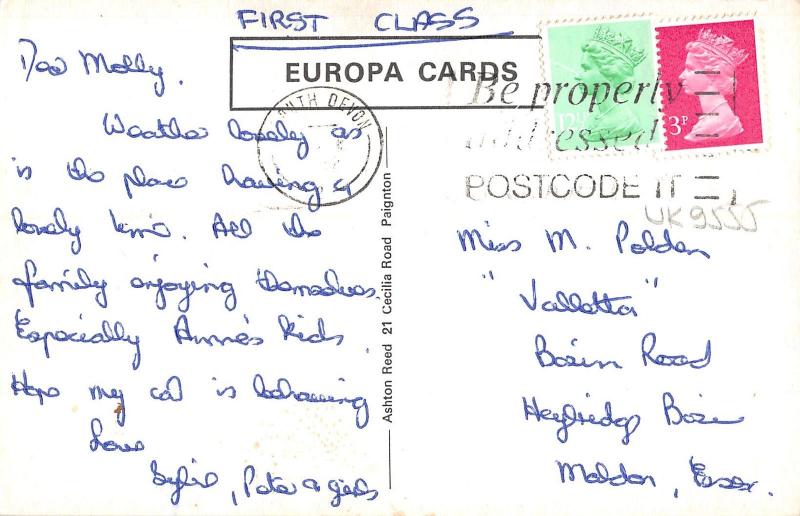 FIRST CLASS
EUROPA CARDS
SOUTH DEVON
Be properly
addressed
POSTCODE IT
12½P
3P
UK9555
Dear Molly.
Weather lovely as
is the place having a
lovely time. All the
family enjoying themselves.
Especially Anne's kids.
Hope my cat is behaving
Love
Sylvie, Peter & girls
Ashton Reed 21 Cecilia Road Paignton
Miss M. Polden
"Valletta"
Basin Road
Heybridge Basin
Maldon, Essex.